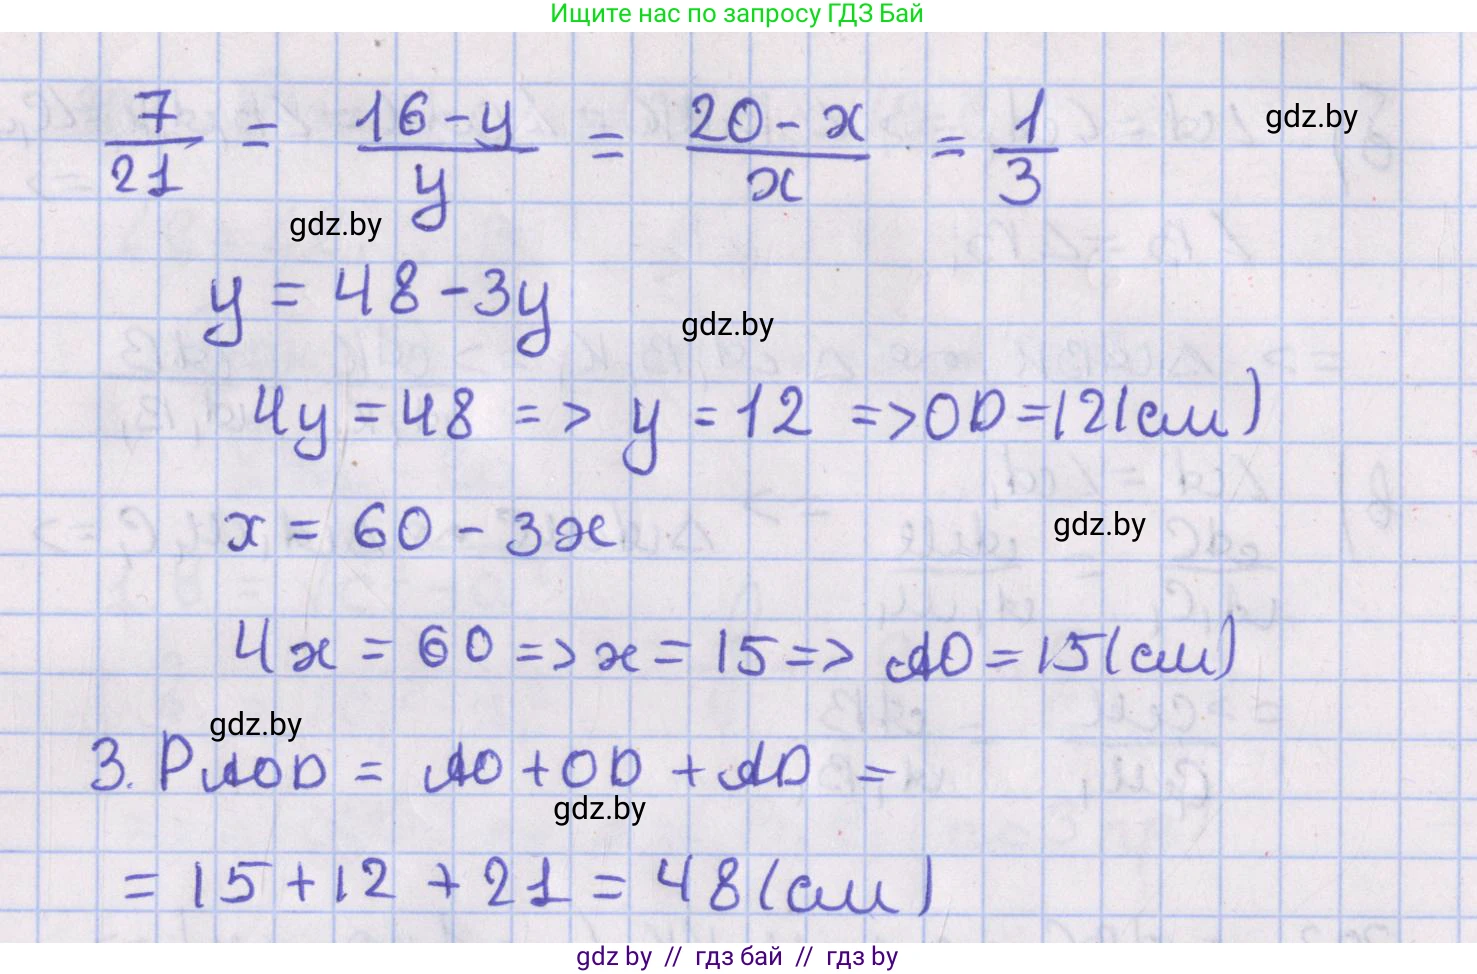 Ищите нас по запросу ГДЗ Бай
7/21 = 16-y/y = 20-x/x = 1/3
gdz.by
gdz.by
y = 48-3y
gdz.by
4y = 48 => y = 12 => OD = 12(см)
x = 60 - 3x
gdz.by
4x = 60 => x = 15 => AO = 15(см)
gdz.by
3. PAOD = AO + OD + AD =
gdz.by
= 15 + 12 + 21 = 48(см)
gdz by // гдз бай // гдз by